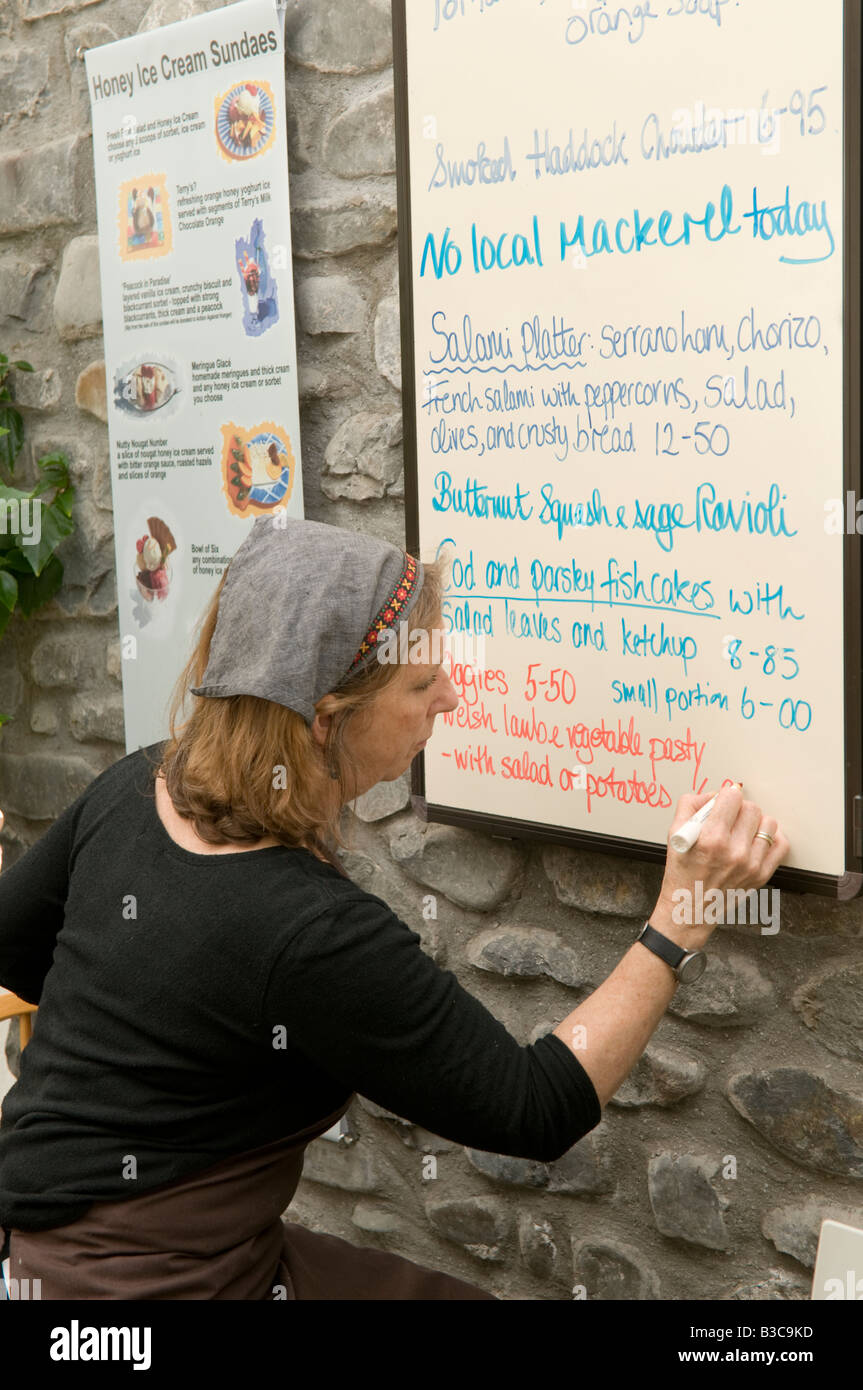 Honey Ice Cream Sundaes
Fresh Fruit Salad and Honey Ice Cream
choose any 3 scoops of sorbet, ice cream
or yoghurt ice
Terry's?
refreshing orange honey yoghurt ice
served with segments of Terry's Milk
Chocolate Orange
'Peacock in Paradise'
layered vanilla ice, crunchy biscuit and
blackcurrant sorbet - topped with strong
blackcurrants, thick cream and a peacock
Meringue Glacé
homemade meringues and thick cream
and any honey ice cream or sorbet
you choose
Nutty Nougat Number
a slice of nougat honey ice cream served
with bitter orange sauce, roasted hazels
and slices of orange
Bowl of Six
any combination
of honey ice
orange soup.
Smoked Haddock Chowder 6-95
No local Mackerel today
Salami Platter: serrano ham, chorizo,
French salami with peppercorns, salad,
olives, and crusty bread 12-50
Butternut Squash & sage Ravioli
Cod and parsley fishcakes with
salad leaves and ketchup 8-85
5-50 small portion 6-00
Welsh lamb & vegetable pasty
- with salad or potatoes
alamy
Image ID: B3C9KD
www.alamy.com